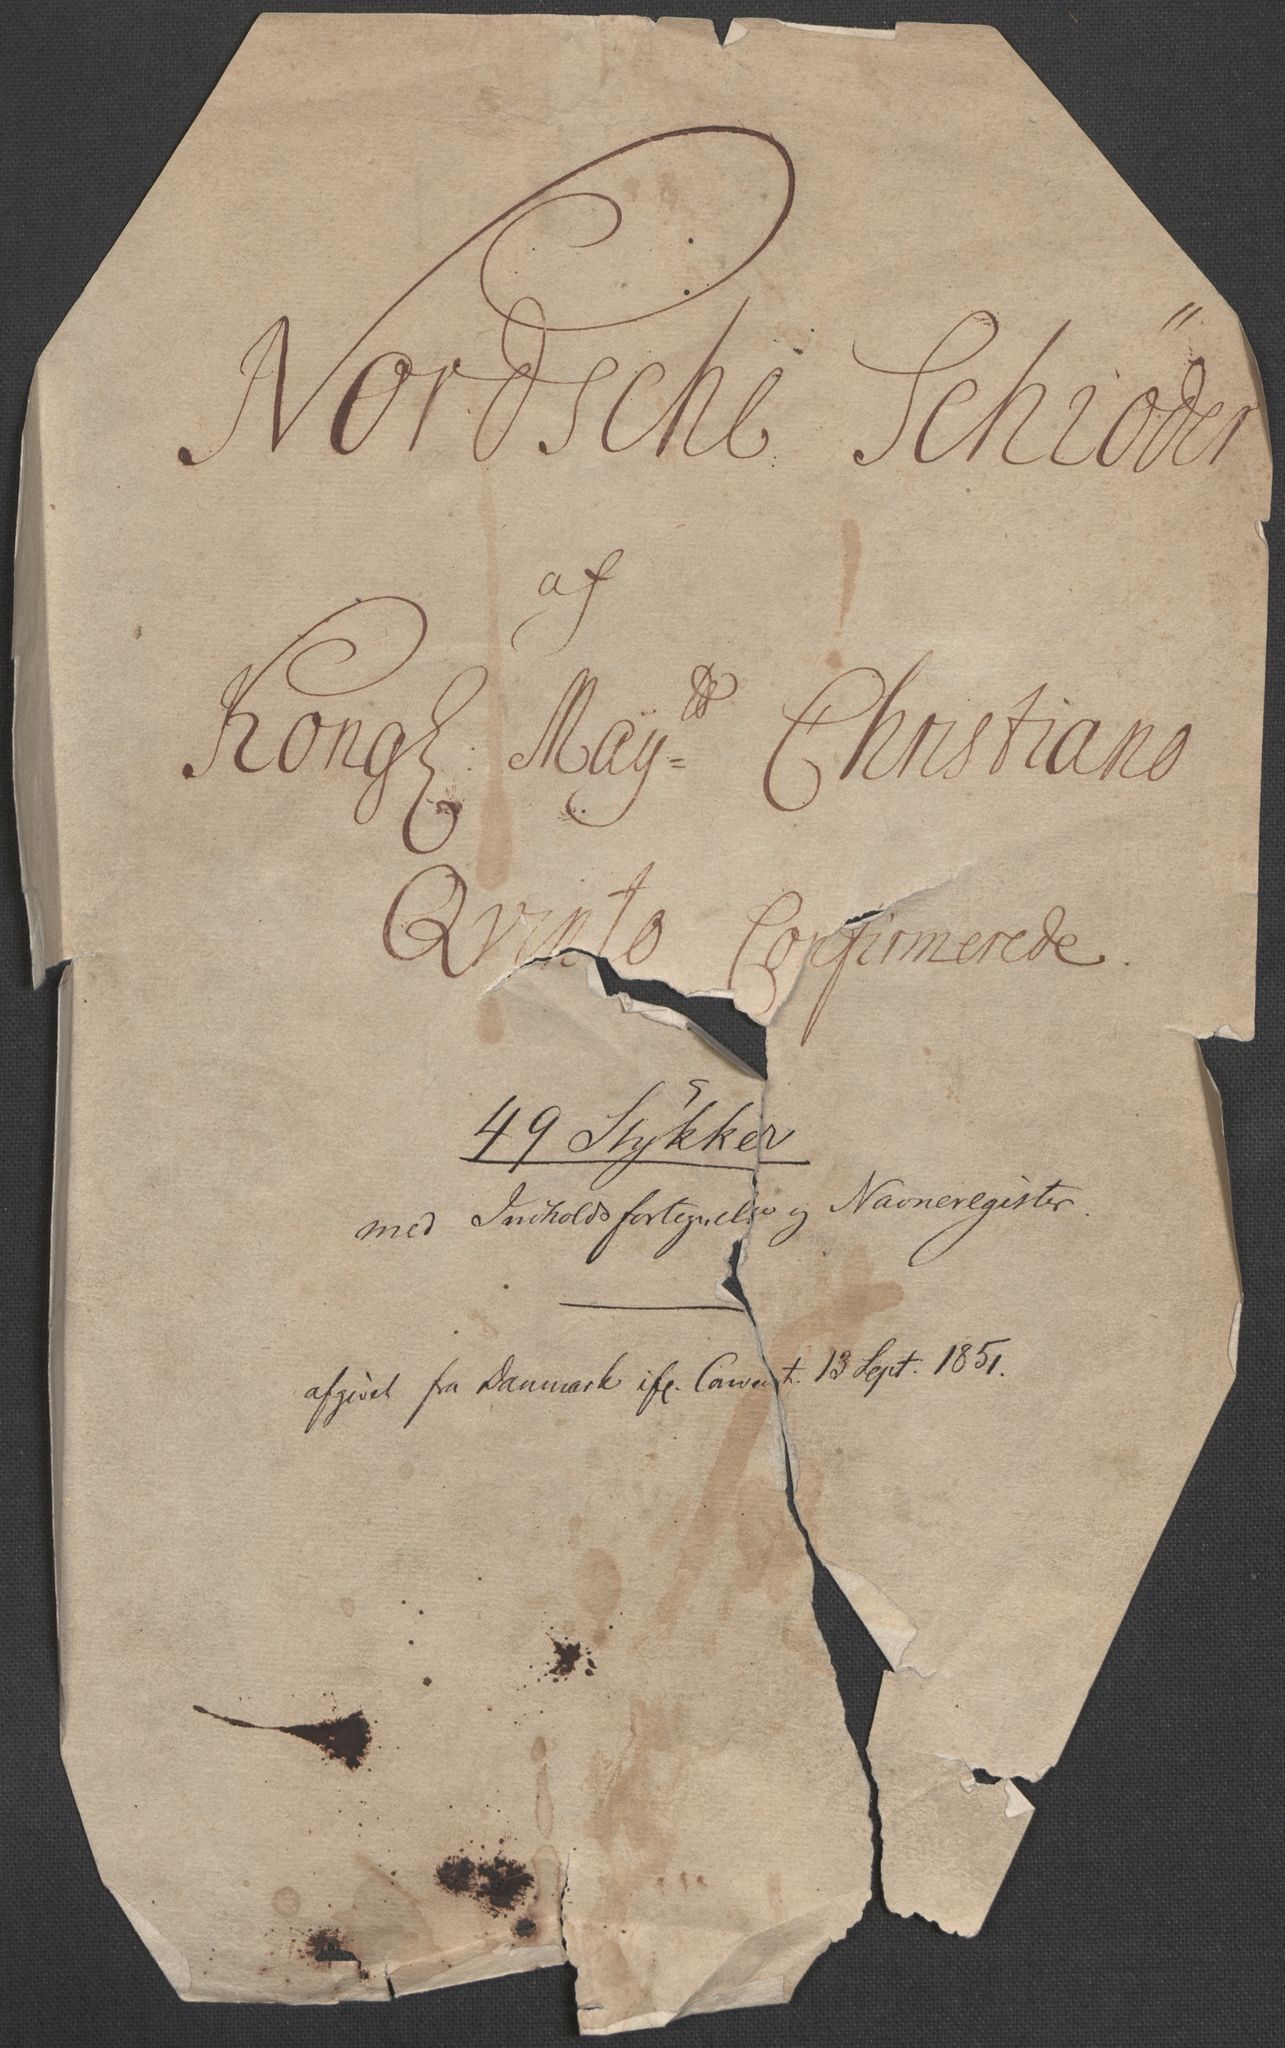 Nordsche Schiöder
af
Kongl: May= Christiano
Qvinto Confirmerede.
49 Stykker
med Indholdsfortegnelse og Navneregister.
afgivet fra Danmark ifl. Convent. 13 Sept. 1851.